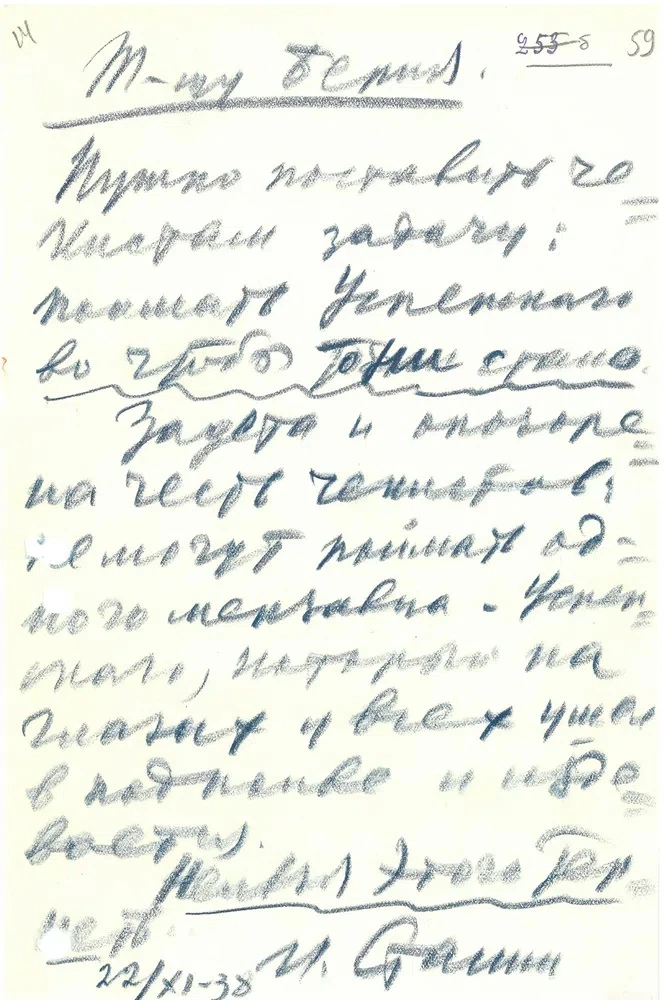 255-б 59
Т-щу Берия.
Нужно поставить че=
кистам задачу:
поймать Успенского
во что бы то ни стало.
Задета и опозоре=
на честь чекистов,
не могут поймать од=
ного мерзавца - Успен=
ского, который на
глазах у всех ушел
в подполье и издe=
вается.
Нельзя этого тер=
петь.
И. Сталин
22/XI-38